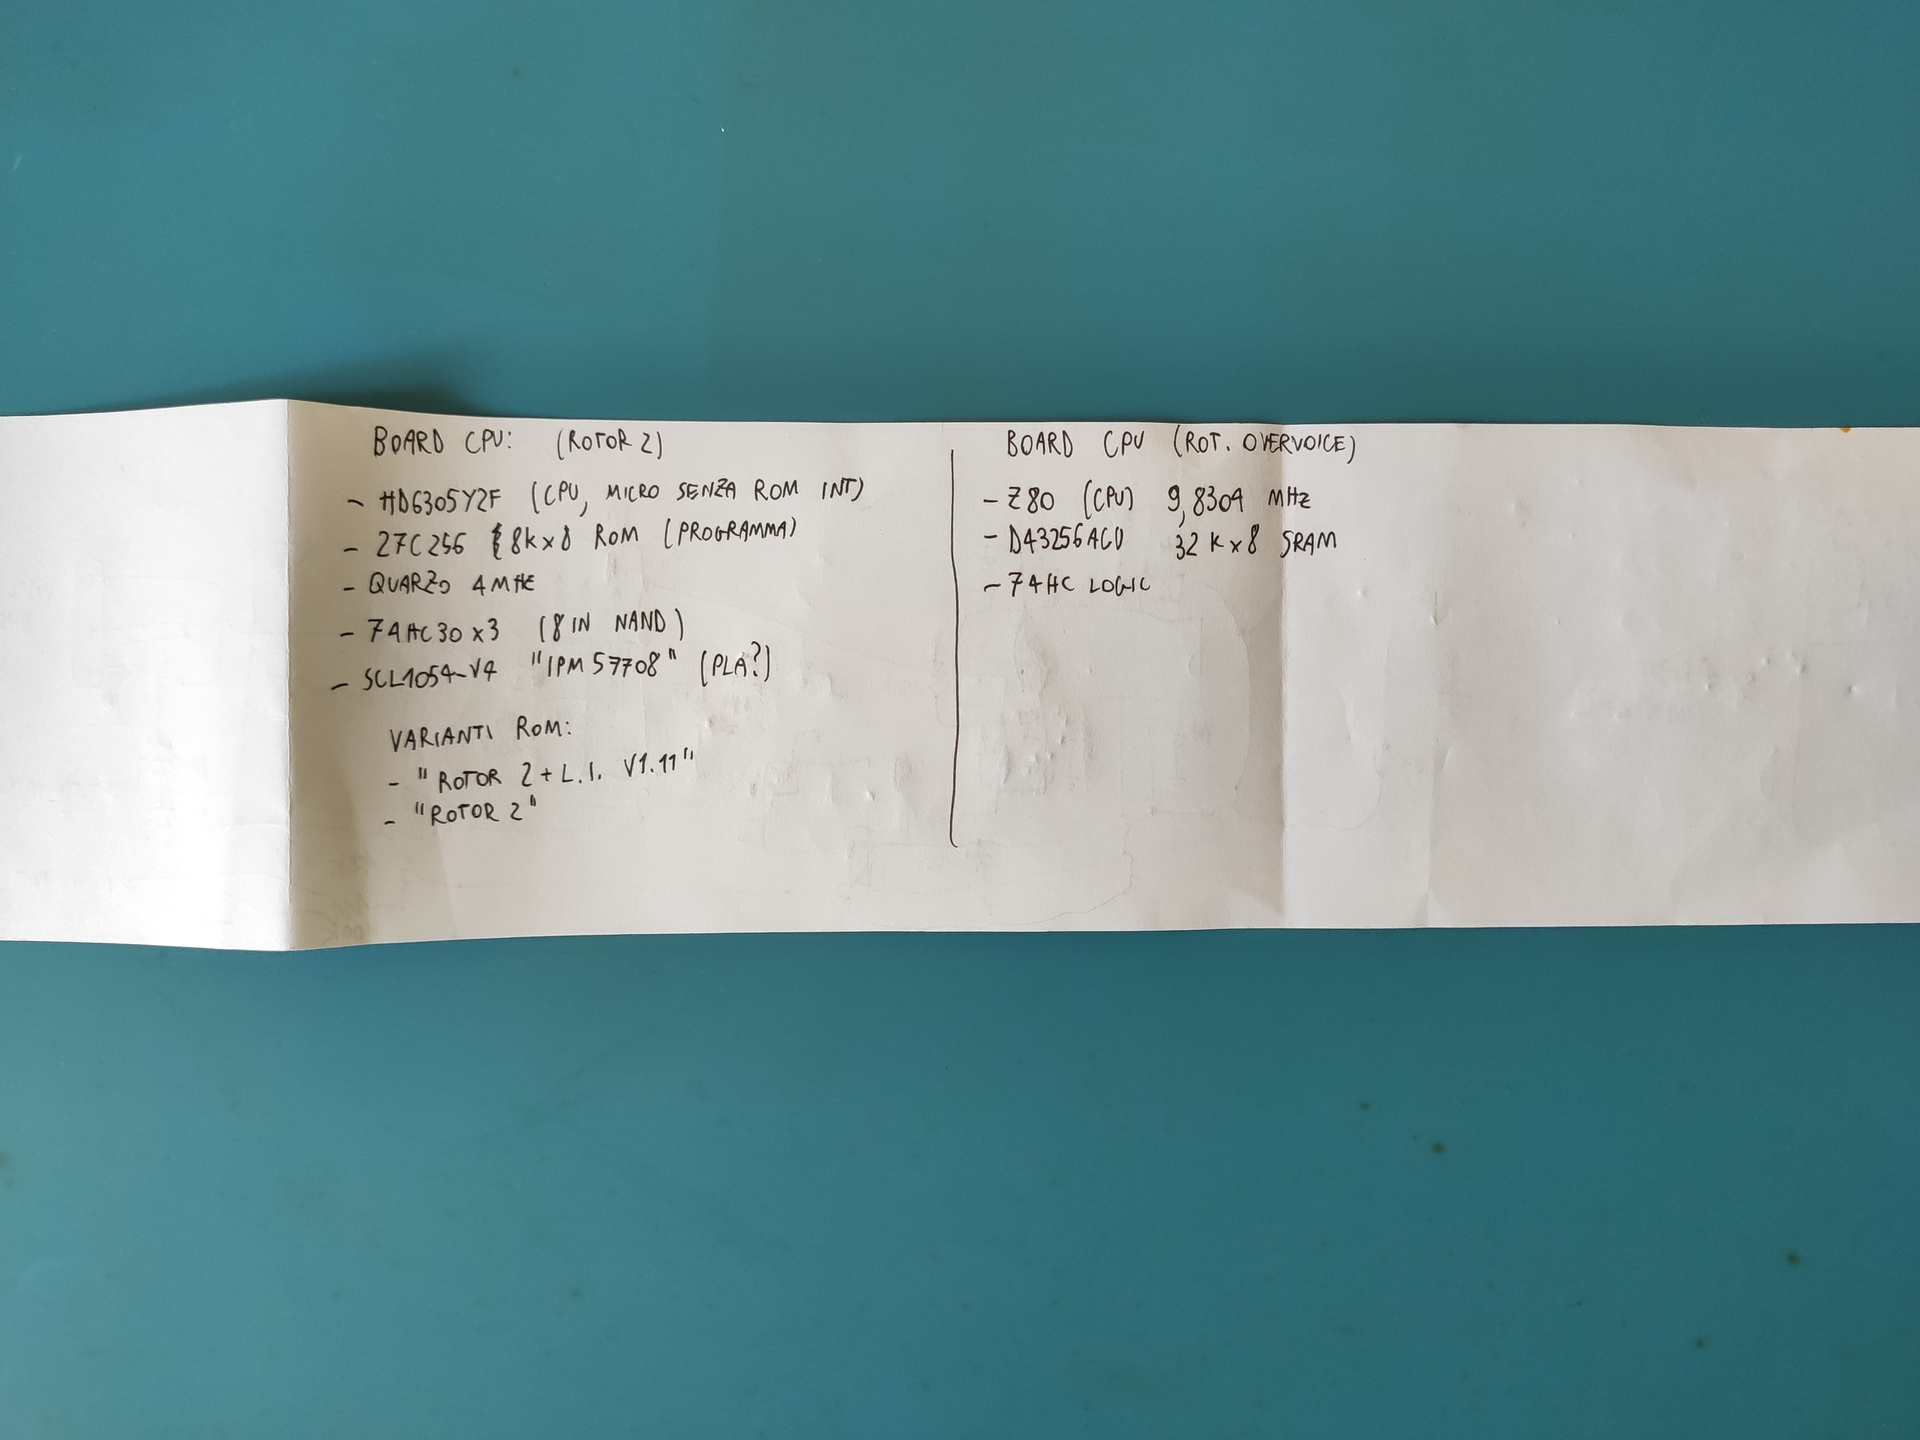 BOARD CPU: (ROTOR 2)
- HD6305Y2F (CPU, MICRO SENZA ROM INT)
- 27C256 8K x 8 ROM (PROGRAMMA)
- QUARZO 4 MHZ
- 74HC30 x 3 (8 IN NAND)
- SCL1054-V4 "IPM 57708" (PLA?)
VARIANTI ROM:
- "ROTOR 2 + L.I. V1.11"
- "ROTOR 2"
BOARD CPU (ROT. OVERVOICE)
- Z80 (CPU) 9,8304 MHz
- D43256ACU 32 K x 8 SRAM
- 74HC LOGIC